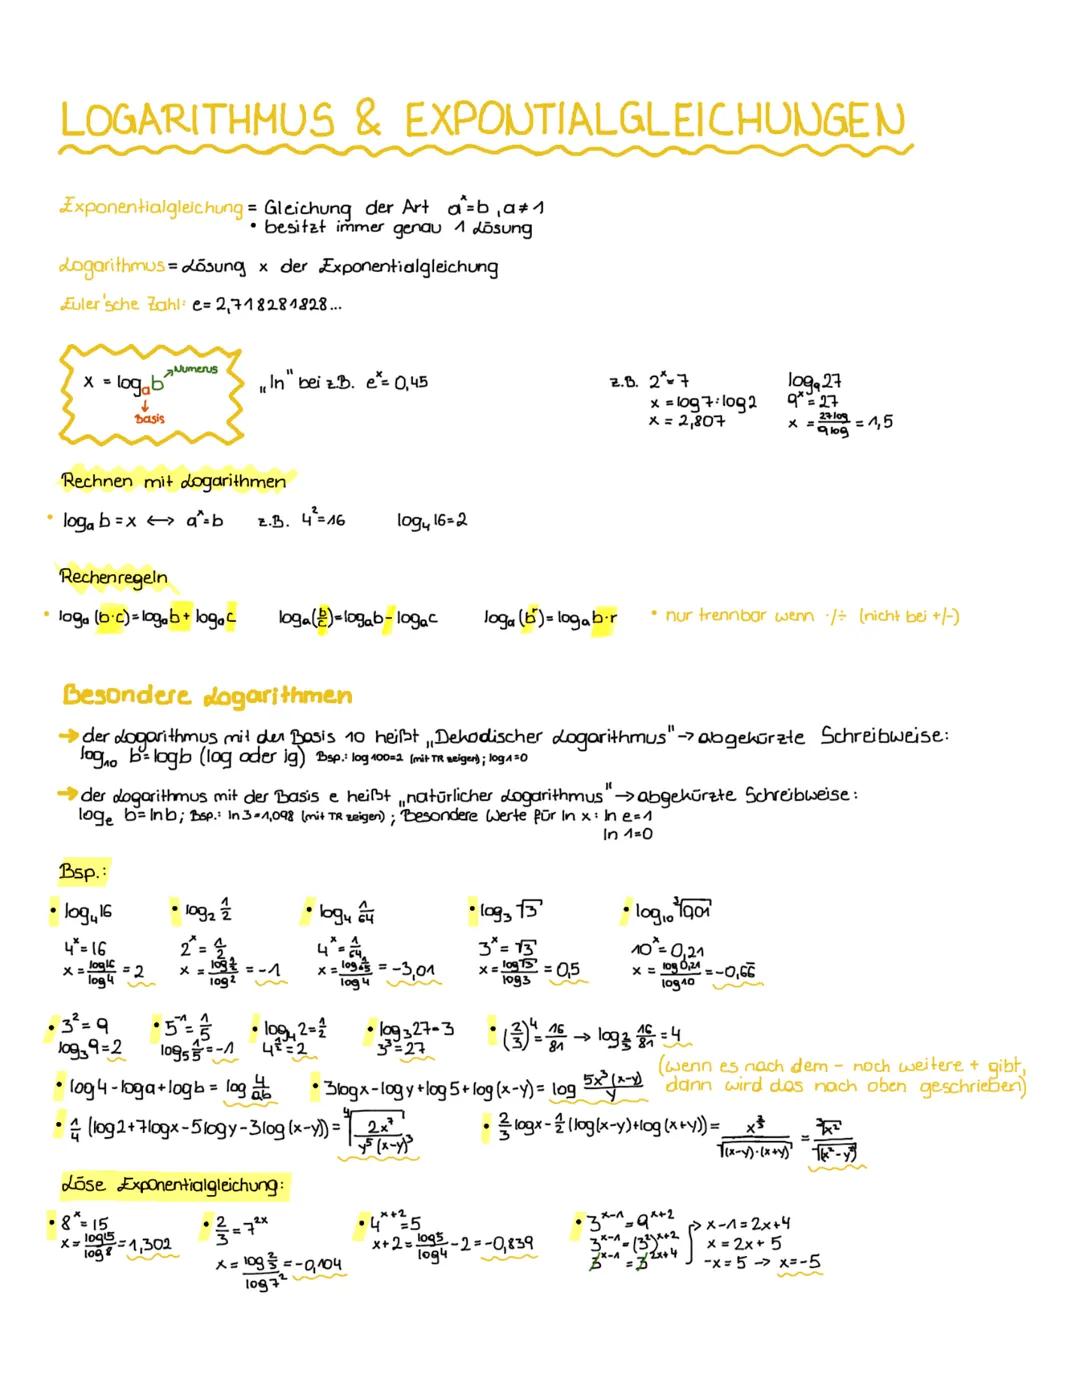 LOGARITHMUS & EXPONTIALGLEICHUNGEN
Exponentialgleichung = Gleichung der Art a^x=b, a≠1
• besitzt immer genau 1 Lösung
Logarithmus = Lösung x der Exponentialgleichung
Euler'sche Zahl: e= 2,718281828...
x = log_a b → Numerus
↓
Basis
„ln" bei z.B. e^x = 0,45
z.B. 2^x=7
x = log7:log2
x = 2,807
log_9 27
9^x = 27
x = 27log/9log = 1,5
Rechnen mit Logarithmen
• log_a b = x ↔ a^x=b z.B. 4^2=16 log_4 16=2
Rechenregeln
• log_a (b·c)=log_a b + log_a c log_a(b/c)=log_a b - log_a c log_a (b^r)= log_a b·r • nur trennbar wenn ·/÷ (nicht bei +/-)
Besondere Logarithmen
→ der Logarithmus mit der Basis 10 heißt „Dekodischer Logarithmus" → abgekürzte Schreibweise:
log_10 b=logb (log oder lg) Bsp.: log 100=2 (mit TR zeigen); log 1=0
→ der Logarithmus mit der Basis e heißt „natürlicher Logarithmus" → abgekürzte Schreibweise:
log_e b=lnb; Bsp.: ln3=1,098 (mit TR zeigen); Besondere Werte für ln x: ln e=1
ln 1=0
Bsp.:
• log_4 16 • log_2 1/2 • log_4 1/64 • log_3 √3 • log_10 ∛0,01
4^x=16 2^x=1/2 4^x=1/64 3^x=√3 10^x=0,21
x = log16/log4 = 2 x = log1/2/log2 = -1 x = log1/65/log4 = -3,01 x = log√3/log3 = 0,5 x = log0,21/log10 = -0,66
• 3^2=9 • 5^-1=1/5 • log_4 2=1/2 • log_3 27=3 • (2/3)^4=16/81 → log_2/3 16/81=4
log_3 9=2 log_5 1/5=-1 4^1/2=2 3^3=27
(wenn es nach dem - noch weitere + gibt,
dann wird das nach oben geschrieben)
• log4-loga+logb= log 4/ab • 3logx-logy+log5+log(x-y)= log 5x^3(x-y)/y
• 1/4 (log2+7logx-5logy-3log(x-y))= ∜(2x^7/y^5(x-y)^3) • 2/3 logx-1/2(log(x-y)+log(x+y))= x^2/3/√((x-y)·(x+y)) = ∛x^2/√(x^2-y^2)
Löse Exponentialgleichung:
• 8^x=15
x=log15/log8=1,302
• 2/3=7^2x
x=log2/3/log7^2=-0,104
• 4^x+2=5
x+2=log5/log4-2=-0,839
• 3^x-1=9^x+2
3^x-1=(3^2)^x+2
3^x-1=3^2x+4
x-1=2x+4
x=2x+5
-x=5 → x=-5